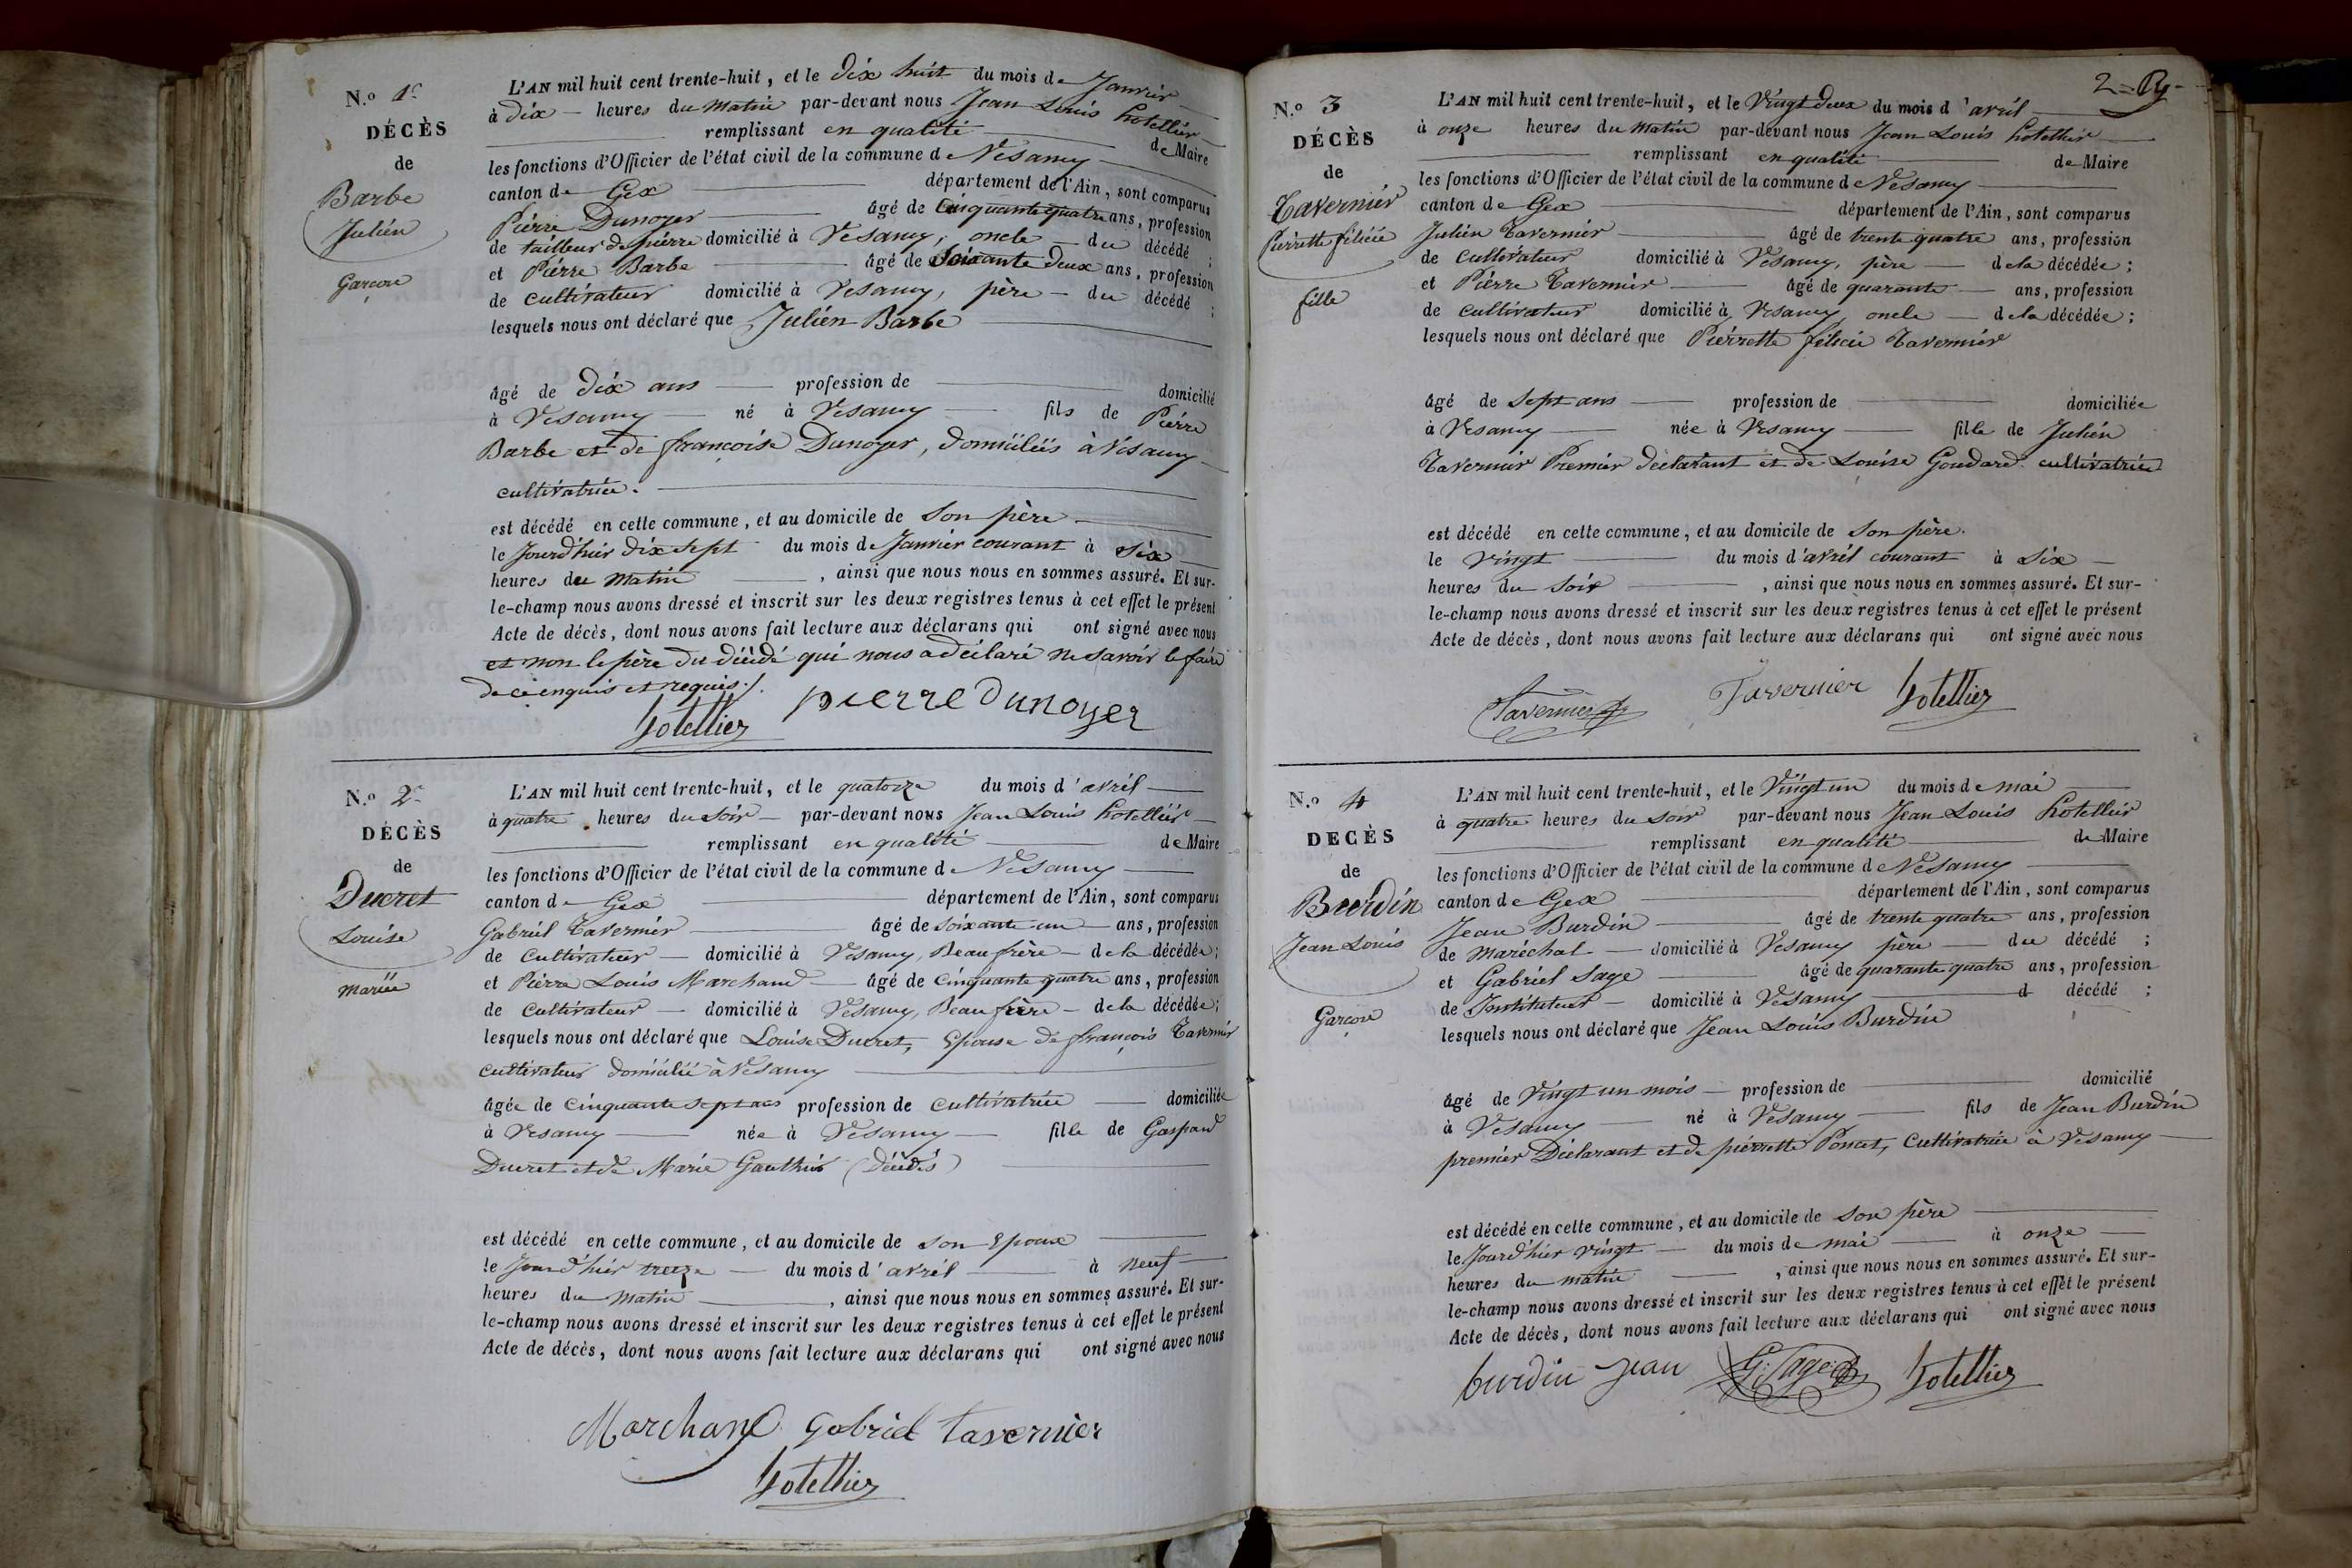 N.o 1er
DÉCÈS
de
Barbe
Julien
Garçon
L'AN mil huit cent trente-huit, et le dix huit du mois de Janvier
à dix heures du matin par-devant nous Jean Louis hotellier
remplissant en qualité de Maire
les fonctions d'Officier de l'état civil de la commune de Vesancy
canton de Gex département de l'Ain, sont comparus
Pierre Dunoyer âgé de Cinquante quatre ans, profession
de tailleur de pierre domicilié à Vesancy, oncle du décédé ;
et Pierre Barbe âgé de Soixante deux ans, profession
de cultivateur domicilié à Vesancy, père du décédé ;
lesquels nous ont déclaré que Julien Barbe
âgé de dix ans profession de domicilié
à Vesancy né à Vesancy fils de Pierre
Barbe et de françoise Dunoyer, domiciliés à Vesancy
cultivatrice.
est décédé en cette commune, et au domicile de son père
le Jourd'hier dix sept du mois de Janvier courant à six
heures du matin , ainsi que nous nous en sommes assuré. Et sur-
le-champ nous avons dressé et inscrit sur les deux registres tenus à cet effet le présent
Acte de décès, dont nous avons fait lecture aux déclarans qui ont signé avec nous
et non le père du décédé qui nous a déclaré ne savoir le faire
de ce enquis et requis ./.
hotellier pierre Dunoyer
N.o 2
DÉCÈS
de
Ducret
Louise
mariée
L'AN mil huit cent trente-huit, et le quatorze du mois d'avril
à quatre heures du soir par-devant nous Jean Louis hotellier
remplissant en qualité de Maire
les fonctions d'Officier de l'état civil de la commune de Vesancy
canton de Gex département de l'Ain, sont comparus
Gabriel Tavernier âgé de soixante un ans, profession
de cultivateur domicilié à Vesancy, Beau frère de la décédée ;
et Pierre Louis Marchand âgé de cinquante quatre ans, profession
de cultivateur domicilié à Vesancy, Beau frère de la décédée ;
lesquels nous ont déclaré que Louise Ducret, Epouse de françois Tavernier
cultivateur domicilié à Vesancy
âgée de cinquante sept ans profession de cultivatrice domiciliée
à Vesancy née à Vesancy fille de Gaspard
Ducret et de Marie Gauthier (décédés)
est décédé en cette commune, et au domicile de son Epoux
le Jourd'hier treize du mois d'avril à neuf
heures du matin , ainsi que nous nous en sommes assuré. Et sur-
le-champ nous avons dressé et inscrit sur les deux registres tenus à cet effet le présent
Acte de décès, dont nous avons fait lecture aux déclarans qui ont signé avec nous
Marchand Gabriel tavernier
hotellier
2
N.o 3
DÉCÈS
de
Tavernier
Pierrette féliciée
fille
L'AN mil huit cent trente-huit, et le vingt deux du mois d'avril
à onze heures du matin par-devant nous Jean Louis hotellier
remplissant en qualité de Maire
les fonctions d'Officier de l'état civil de la commune de Vesancy
canton de Gex département de l'Ain, sont comparus
Julien Tavernier âgé de trente quatre ans, profession
de cultivateur domicilié à Vesancy, père de la décédée ;
et Pierre Tavernier âgé de quarante ans, profession
de cultivateur domicilié à Vesancy, oncle de la décédée ;
lesquels nous ont déclaré que Pierrette félicie Tavernier
âgé de sept ans profession de domiciliée
à Vesancy née à Vesancy fille de Julien
Tavernier Premier déclarant et de Louise Goudard cultivatrice
est décédé en cette commune, et au domicile de son père.
le vingt du mois d'avril courant à six
heures du soir , ainsi que nous nous en sommes assuré. Et sur-
le-champ nous avons dressé et inscrit sur les deux registres tenus à cet effet le présent
Acte de décès, dont nous avons fait lecture aux déclarans qui ont signé avec nous
Tavernier Tavernier hotellier
N.o 4
DECÈS
de
Burdin
Jean Louis
Garçon
L'AN mil huit cent trente-huit, et le vingt un du mois de mai
à quatre heures du soir par-devant nous Jean Louis hotellier
remplissant en qualité de Maire
les fonctions d'Officier de l'état civil de la commune de Vesancy
canton de Gex département de l'Ain, sont comparus
Jean Burdin âgé de trente quatre ans, profession
de maréchal domicilié à Vesancy père du décédé ;
et Gabriel Sage âgé de quarante quatre ans, profession
de Instituteur domicilié à Vesancy d décédé ;
lesquels nous ont déclaré que Jean Louis Burdin
âgé de vingt un mois profession de domicilié
à Vesancy né à Vesancy fils de Jean Burdin
premier Déclarant et de pierrette Poncet, cultivatrice à Vesancy
est décédé en cette commune, et au domicile de son père
le Jourd'hier vingt du mois de mai à onze
heures du matin , ainsi que nous nous en sommes assuré. Et sur-
le-champ nous avons dressé et inscrit sur les deux registres tenus à cet effet le présent
Acte de décès, dont nous avons fait lecture aux déclarans qui ont signé avec nous
burdin jean G. Sage hotellier